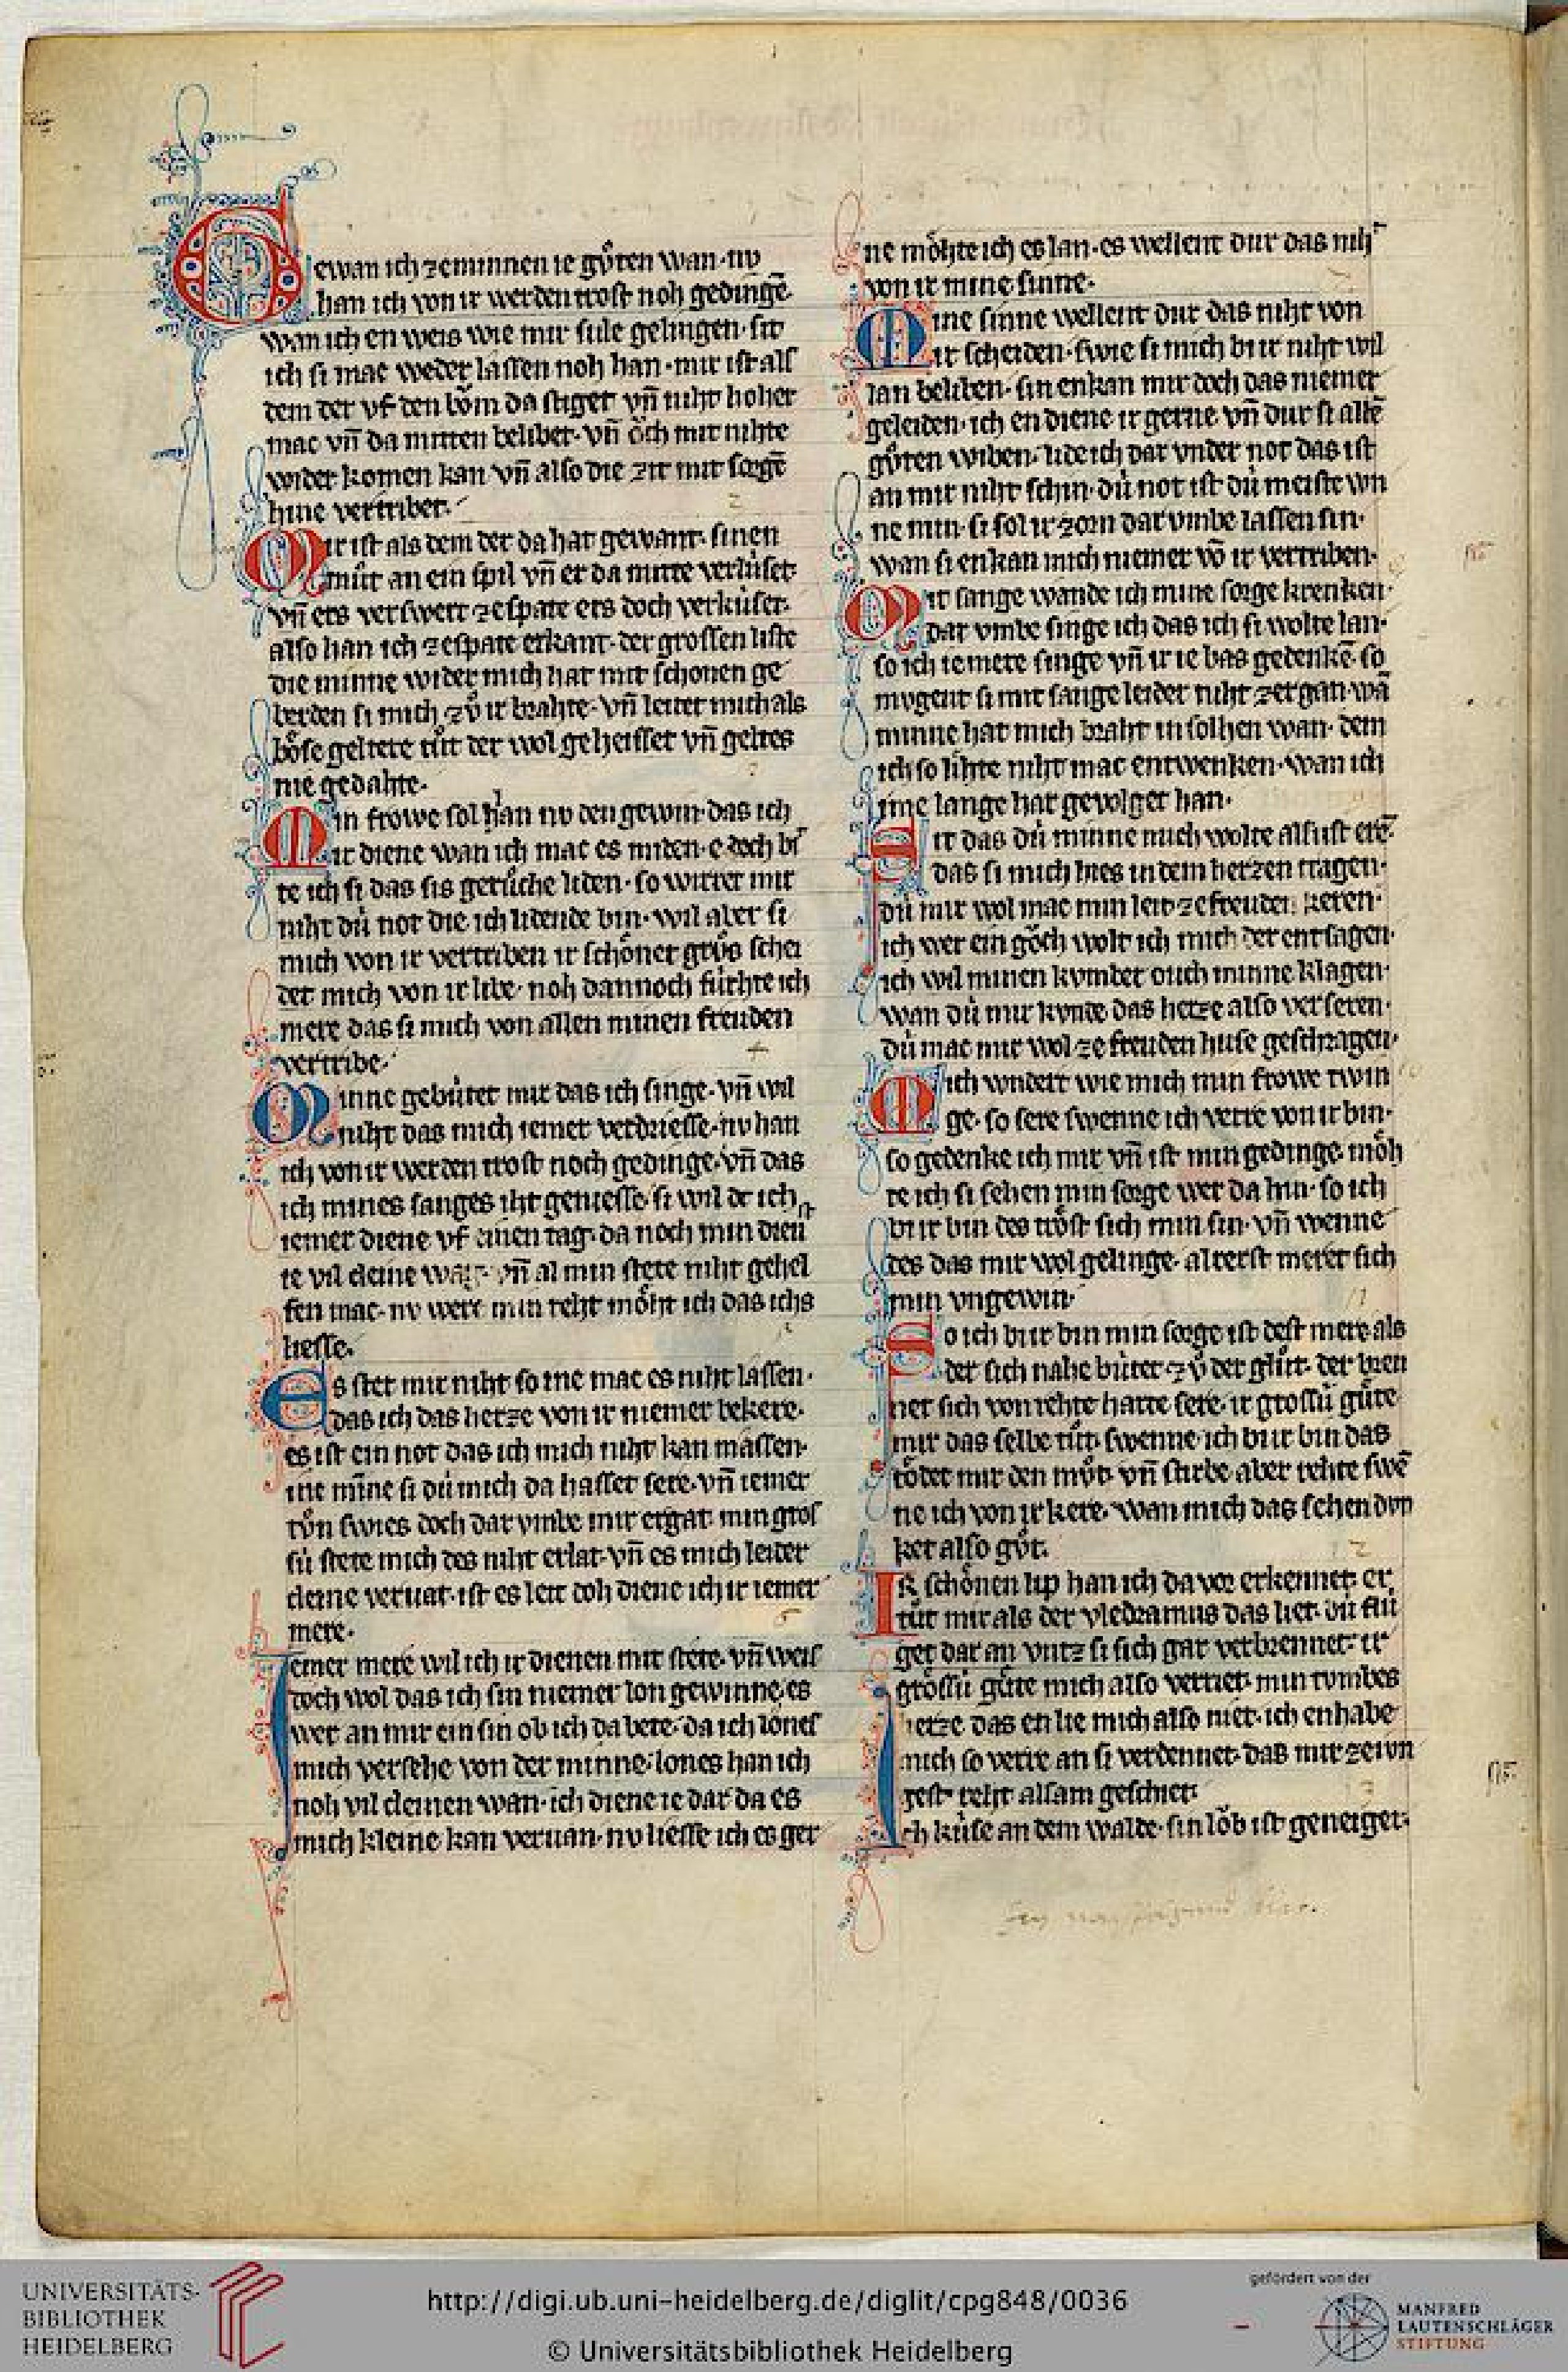 Gewan ich ze minnen ie gůten wan · nv
han ich von ir werden trost noh gedingē
wan ich en weis wie mir súle gelingen · sit
ich si mac weder lassen noh han · mir ist als
dem der vf den bǒm da stiget vn̄ niht hoher
mac vn̄ da mitten belibet · vn̄ ǒch mit nihte
wider komen kan vn̄ also die zit mit sorgē
hine vertribet ·
Mir ist als dem der da hat gewant · sinen
můt an ein spil vn̄ er da mitte verlúset ·
vn̄ ers verswert ze spate ers doch verkúset ·
also han ich ze spate erkant · der grossen liste
die minne wider mich hat mit schonen ge
berden si mich zů ir brahte · vn̄ leitet mich als
bôse geltere tůt der wol geheisset vn̄ geltes
nie gedahte ·
Min frowe sol han nv den gewin · das ich
ir diene wan ich mac es miden · e doch bi
te ich si das sis gerůche liden · so wirret mir
niht dú not die ich lidende bin · wil aber si
mich von ir vertriben ir schôner grůs schei
det mich von ir libe · noh dannoch fúrhte ich
mere das si mich von allen minen freuden
vertribe ·
Minne gebútet mir das ich singe · vn̄ wil
niht das mich iemer verdriesse · nv han
ich von ir werden trost noch gedinge · vn̄ das
ich mines sanges iht geniesse · si wil dc ich
iemer diene vf einen tag · da noch min dien st
te vil cleine wac · vn̄ al min stete niht gehel
fen mac · nv were min reht môht ich das ichs
liesse ·
Es stet mir niht so ine mac es niht lassen ·
das ich das herze von ir niemer bekere ·
es ist ein not das ich mich niht kan massen ·
ine miñe si dú mich da hasset sere · vn̄ iemer
tůn swies doch dar vmbe mir ergat · min gros
sú stete mich des niht erlat · vn̄ es mich leider
cleine veruat · ist es leit doh diene ich ir iemer
mere ·
Iemer mere wil ich ir dienen mit stete · vn̄ weis
doch wol das ich sin niemer lon gewinne · es
wer an mir ein sin ob ich da bete · da ich lones
mich versehe von der minne · lones han ich
noh vil cleinen wan · ich diene ie dar da es
mich kleine kan veruan · nv liesse ich es ger
ne môhte ich es lan · es wellent dur das niht
von ir mine sinne ·
Mine sinne wellent dur das niht von
ir scheiden · swie si mich bi ir niht wil
lan beliben · sin enkan mir doch das niemer
geleiden · ich en diene ir gerne vn̄ dur si allē
gůten wiben · lide ich dar vnder not das ist
an mir niht schin · dú not ist dú meiste wn
ne min · si sol ir zorn dar vmbe lassen sin ·
wan si enkan mich niemer võ ir vertriben ·
Mit sange wande ich mine sorge krenken ·
dar vmbe singe ich das ich si wolte lan ·
so ich ie mere singe vn̄ ir ie bas gedenkē · so
mvgent si mit sange leider niht zergan · wā
minne hat mich braht in solhen wan · dem
ich so lihte niht mac entwenken · wan ich
ime lange har gevolget han ·
Sit das dú minne mich wolte alsust erē ·
das si mich hies in dem herzen tragen ·
dú mir wol mac min leit ze freuden keren ·
ich wer ein gǒch wolt ich mich der entsagen ·
ich wil minen kvmber ouch minne klagen ·
wan dú mir kvnde das herze also verseren ·
dú mac mir wol ze freuden huse geschragen ·
Mich wndert wie mich min frowe twin
ge · so sere swenne ich verre von ir bin ·
so gedenke ich mir vn̄ ist min gedinge · môh
te ich si sehen min sorge wer da hin · so ich
bi ir bin des trôst sich min sin · vn̄ wenne
des das mir wol gelinge · alrerst meret sich
min vngewin ·
So ich bi ir bin min sorge ist dest mere · als
der sich nahe bútet zů der glůt · der bren
net sich von rehte harte sere · ir grossú gûte
mir das selbe tůt · swenne ich bi ir bin das
tôdet mir den můt · vn̄ stirbe aber rehte swē
ne ich von ir kere · wan mich das sehen dvn
ket also gůt ·
Ir schônen lip han ich da vor erkennet · er
tůt mir als der vledramus das lieht · dú flú
get dar an vntz si sich gar verbrennet · ir
grôssú gûte mich also verriet · min tvmbes
herze das en lie mich also niet · ich en habe
mich so verre an si verdennet · das mir ze ivn
gest reht alsam geschiet ·
Ich kúse an dem walde · sin lǒb ist geneiget ·
UNIVERSITÄTS-
BIBLIOTHEK
HEIDELBERG
http://digi.ub.uni-heidelberg.de/diglit/cpg848/0036
© Universitätsbibliothek Heidelberg
gefördert von der
MANFRED
LAUTENSCHLÄGER
STIFTUNG